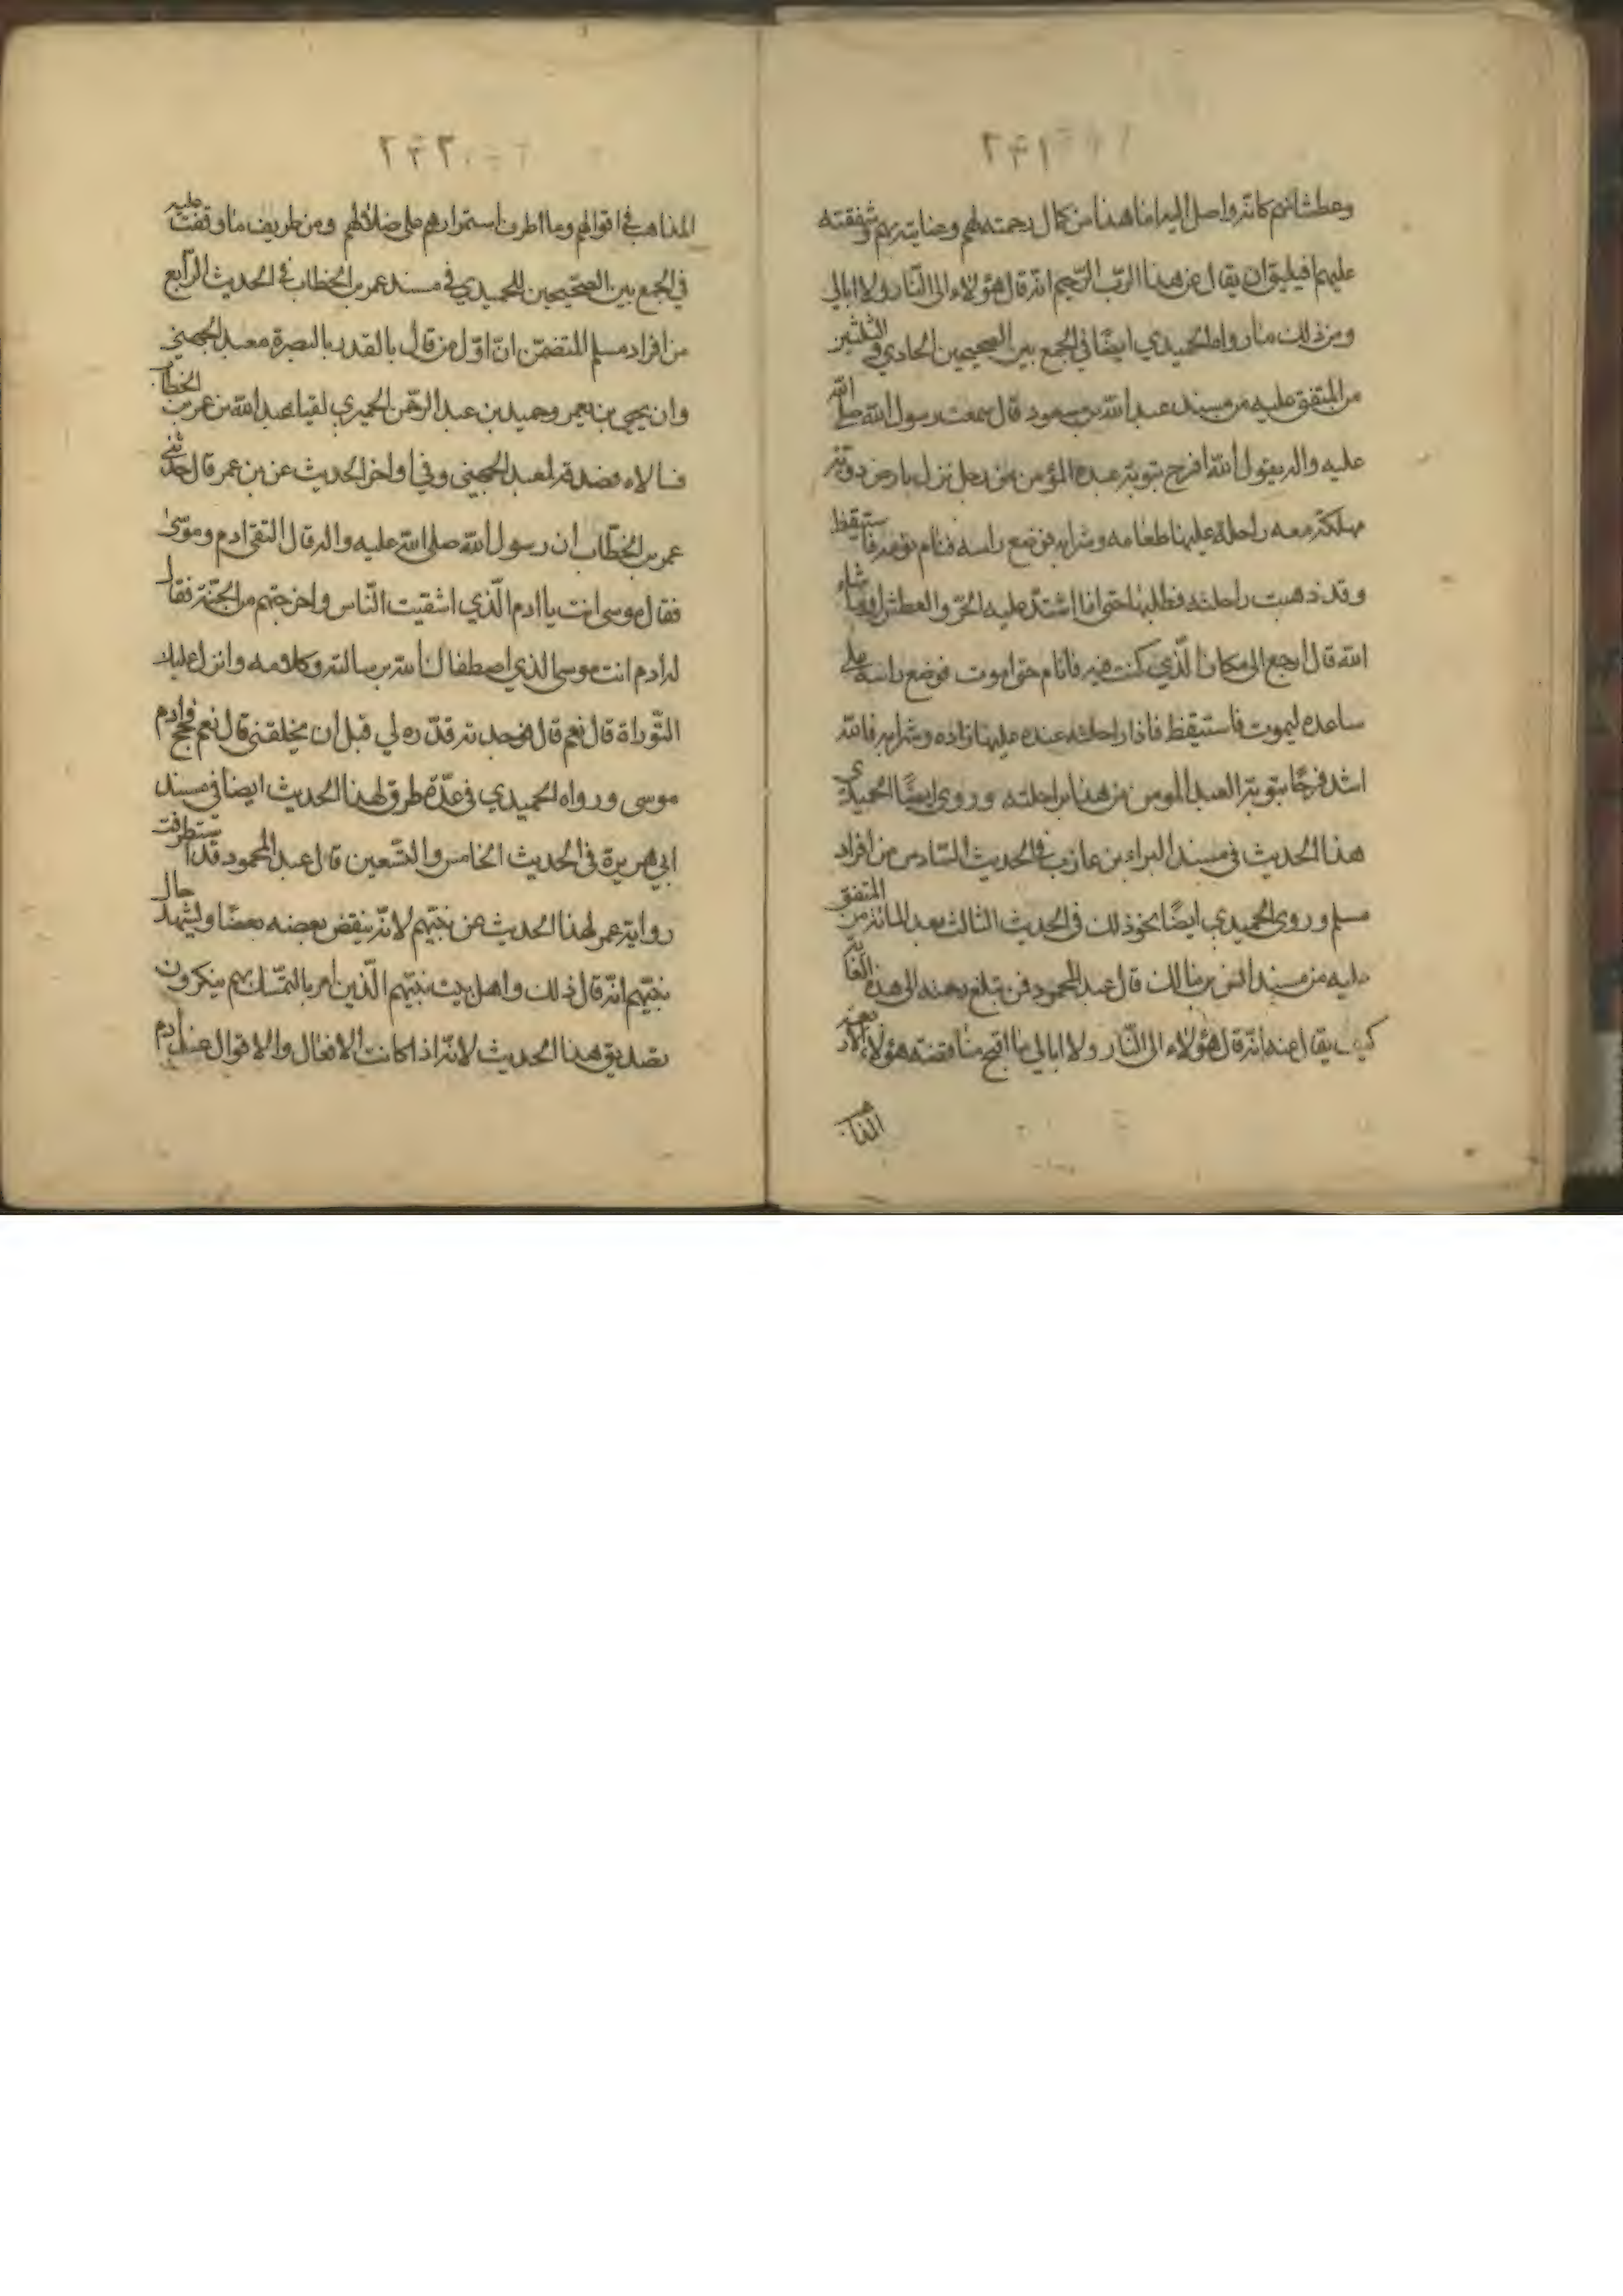 ٢٤١
وعطشانهم كانه واصل اليه اما هذا من كمال رحمته لهم وعنايته بهم وشفقته
عليهم افيليق ان يقال عن هذا الرب الرحيم انه قال هؤلاء الى النار ولا ابالي
ومن ذلك ما رواه الحميدي ايضا في الجمع بين الصحيحين الحادي والثلثين
من المتفق عليه من مسند عبد الله بن مسعود قال سمعت رسول الله صلى الله
عليه واله يقول لله افرح بتوبة عبده المؤمن من رجل نزل بارض دوية
مهلكة معه راحلة عليها طعامه وشرابه فوضع راسه فنام نومة فاستيقظ
وقد ذهبت راحلته فطلبها حتى اذا اشتد عليه الحر والعطش او ما شاء
الله قال ارجع الى مكان الذي كنت فيه فانام حتى اموت فوضع راسه على
ساعده ليموت فاستيقظ فاذا راحلته عنده عليها زاده وشرابه فالله
اشد فرحًا بتوبة العبد المومن من هذا براحلته وروى ايضًا الحميدي
هذا الحديث في مسند البراء بن عازب في الحديث السادس من افراد
مسلم وروى الحميدي ايضًا نحو ذلك في الحديث الثالث بعد المائة من المتفق
عليه من مسند انس بن مالك قال عبد المحمود فمن تبلغ رحمته الى هذه الغاية
كيف يقال عنه انه قال هؤلاء الى النار ولا ابالي ما اقبح مناقضة هؤلاء الاربعة
المذاهب
٢٤٢
المذاهب في اقوالهم وما اطرف استمرارهم على ضلالهم ومن طريف ما وقفت عليه
في الجمع بين الصحيحين للحميدي في مسند عمر بن الخطاب في الحديث الرابع
من افراد مسلم المتضمن ان اول من قال بالقدر بالبصرة معبد الجهني
وان يحيى بن يعمر وحميد بن عبد الرحمن الحميري لقيا عبد الله بن عمر بن الخطاب
فسالاه معبد الجهني وفي اواخر الحديث عن بن عمر قال حدثني
عمر بن الخطاب ان رسول الله صلى الله عليه واله قال التقى ادم وموسى
فقال موسى انت يا ادم الذي اشقيت الناس واخرجتهم من الجنة فقال
له ادم انت موسى الذي اصطفاك الله برسالته وكلامه وانزل عليك
التوراة قال نعم قال فوجدته قدره لي قبل ان يخلقني قال نعم فحج ادم
موسى ورواه الحميدي في عدة طرق لهذا الحديث ايضا في مسند
ابي هريرة في الحديث الخامس والتسعين قال عبد المحمود قد استطرفت
رواية عمر لهذا الحديث عن نبيهم لانه ينقض بعضه بعضًا وليشهد حال
نبيهم انه قال ذلك واهل بيت نبيهم الذين امر بالتمسك بهم ينكرون
تصديق هذا الحديث لانه اذا كانت الافعال والاقوال عند ادم